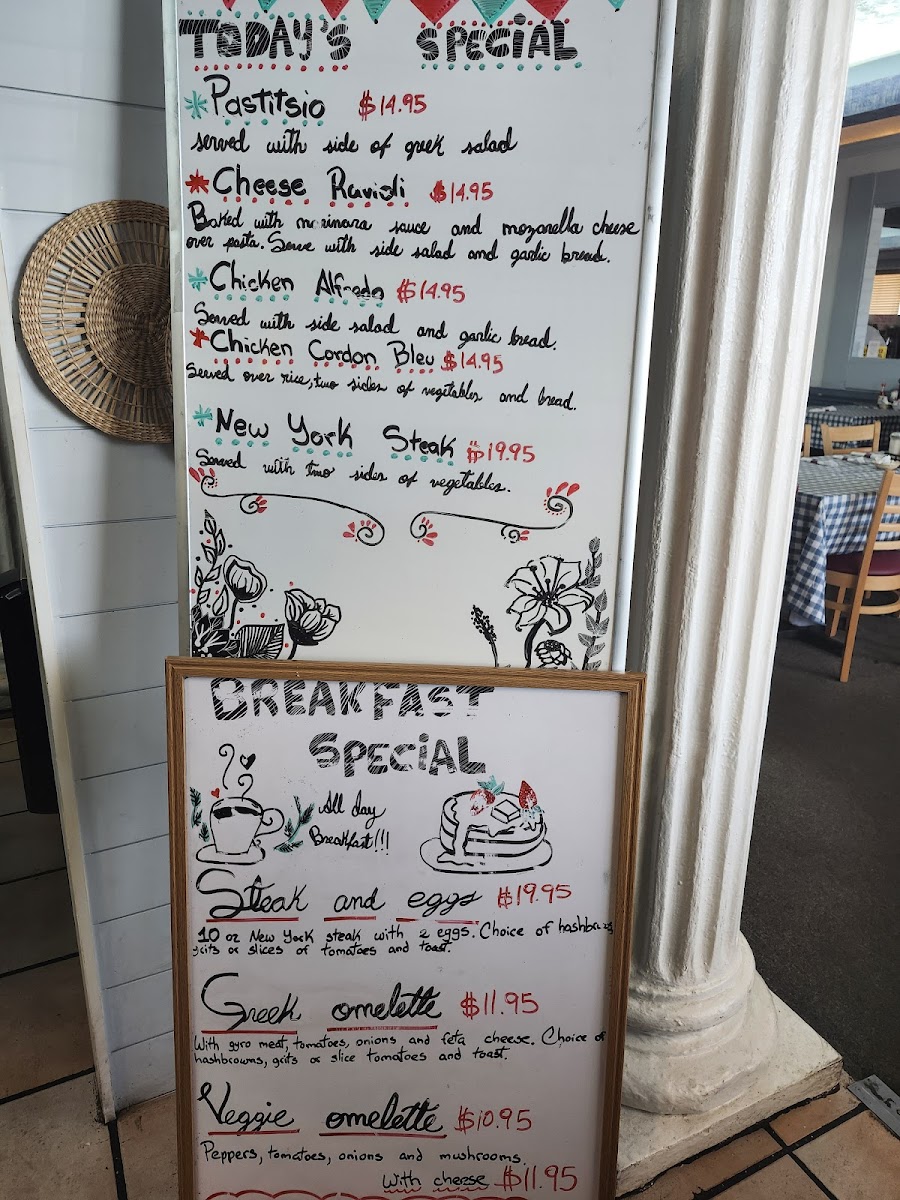 TODAY'S SPECIAL
Pastitsio $14.95
served with side of greek salad
Cheese Ravioli $14.95
Baked with marinara sauce and mozarella cheese
over pasta. Serve with side salad and garlic bread.
Chicken Alfredo $14.95
Served with side salad and garlic bread.
Chicken Cordon Bleu $14.95
Served over rice, two sides of vegetables and bread.
New York Steak $19.95
Served with two sides of vegetables.
BREAKFAST
SPECIAL
All day
Breakfast!!!
Steak and eggs $19.95
10 oz New York steak with 2 eggs. Choice of hashbrowns
grits or slices of tomatoes and toast.
Greek omelette $11.95
With gyro meat, tomatoes, onions and feta cheese. Choice of
hashbrowns, grits or slice tomatoes and toast.
Veggie omelette $10.95
Peppers, tomatoes, onions and mushrooms.
with cheese $11.95